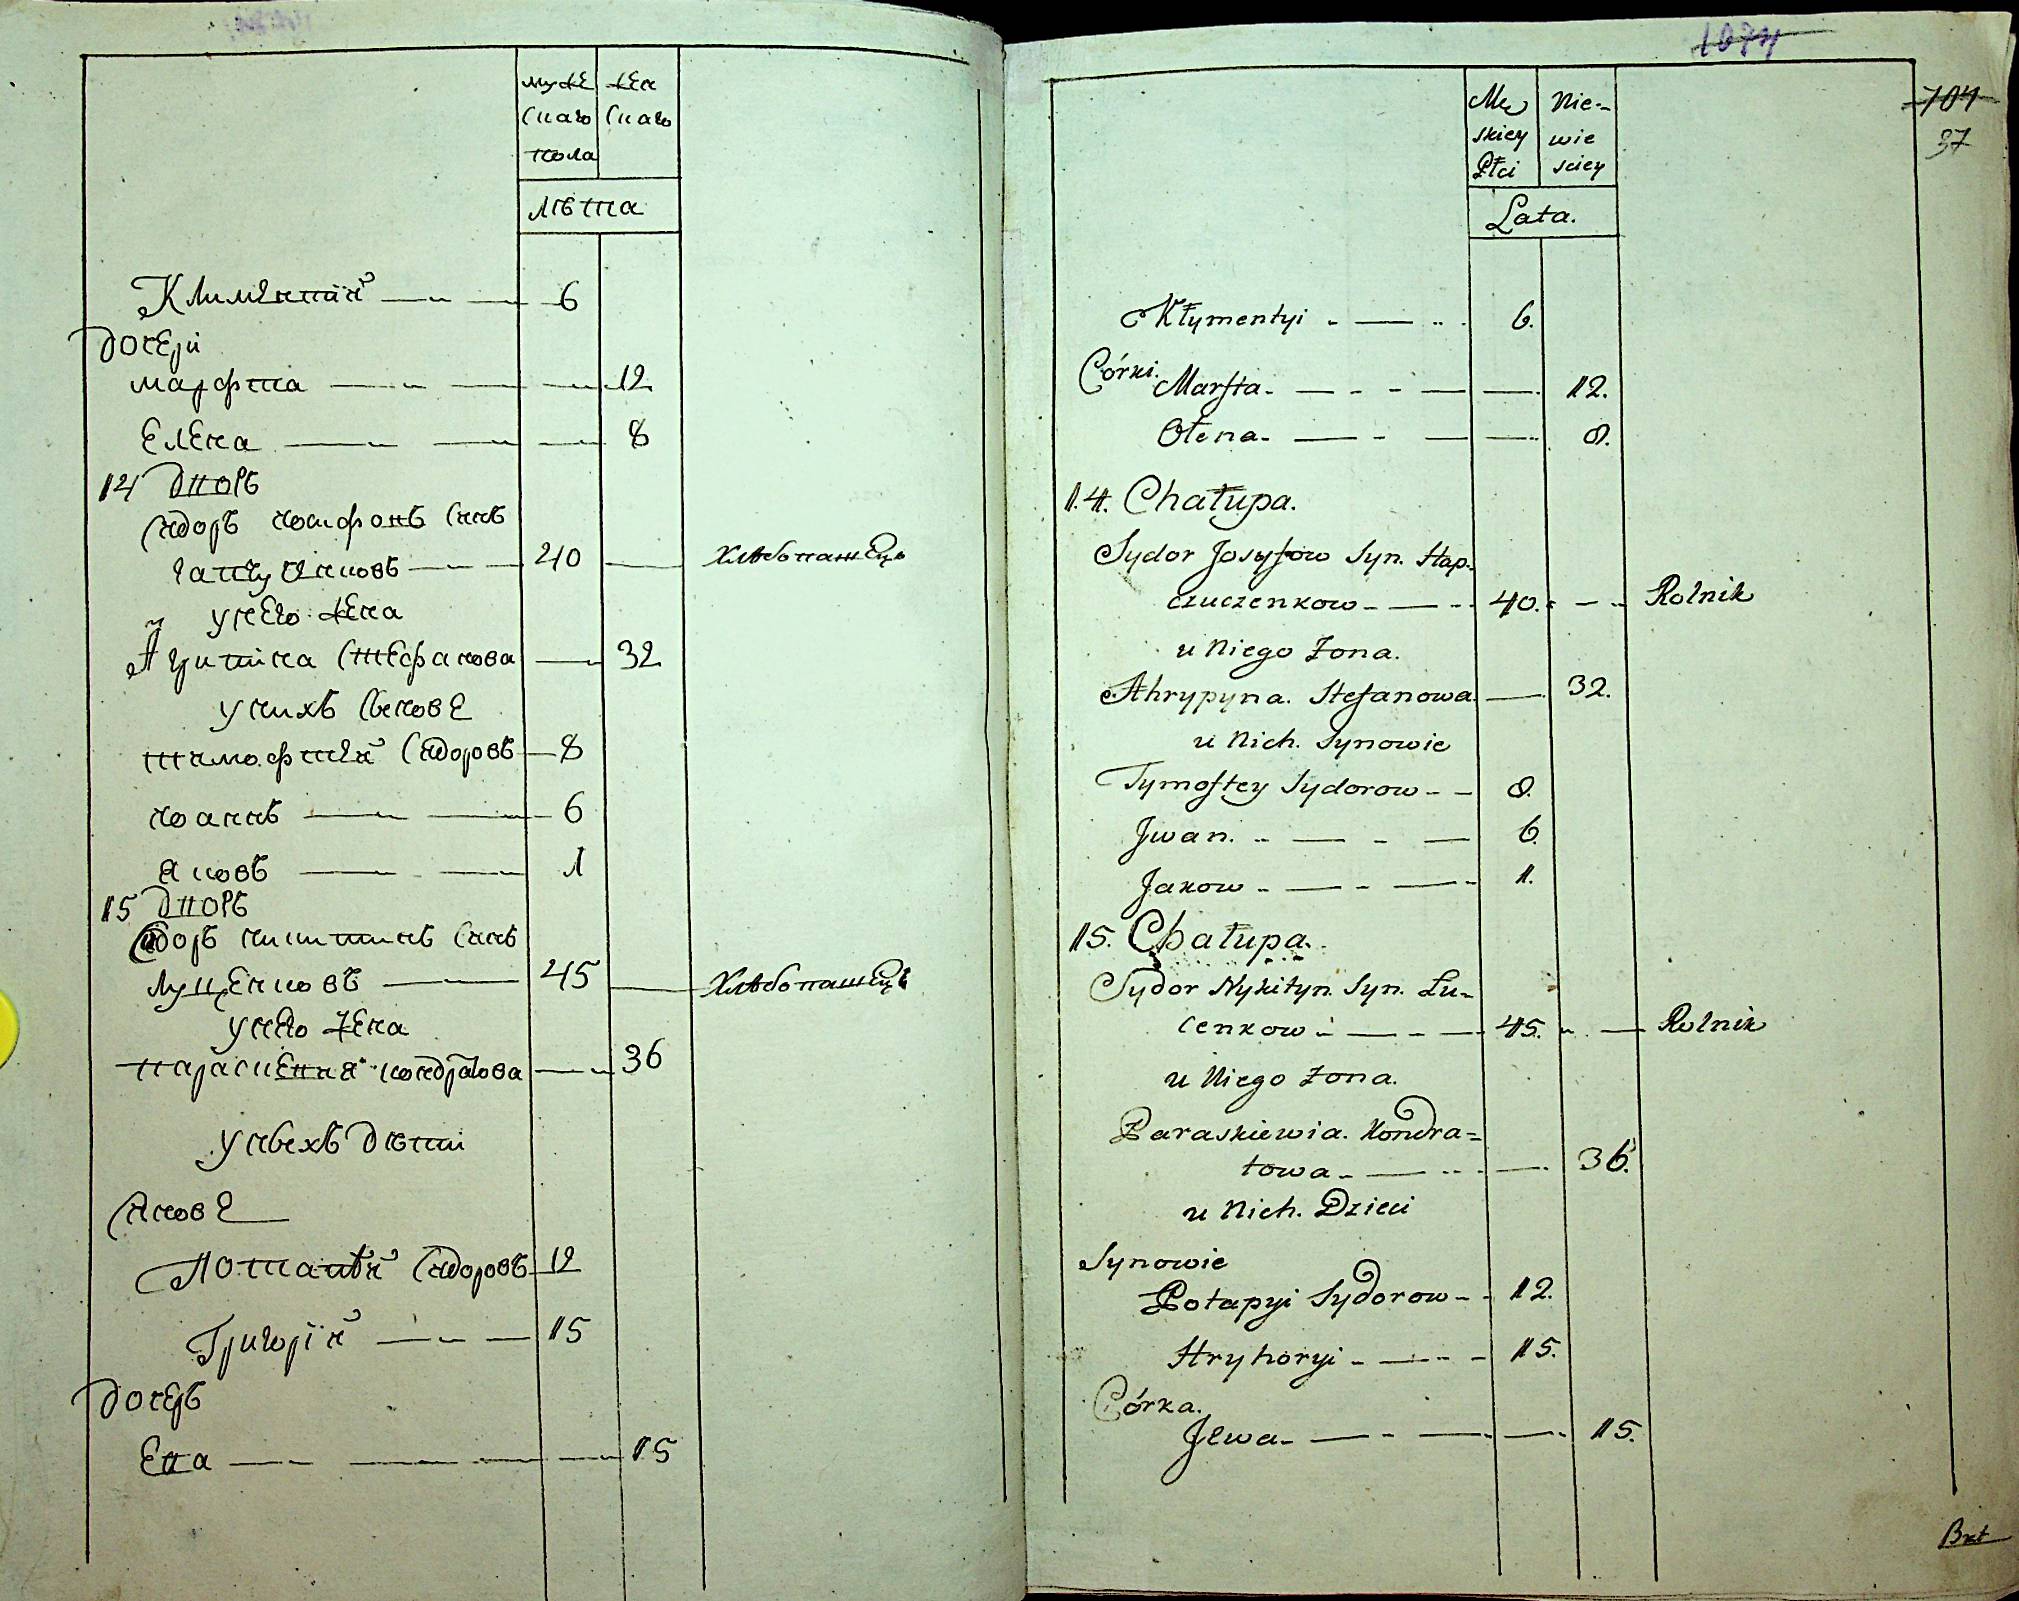 муже жен
скаго скаго
пола
лѣта
Климентій 6
дочери
марфта 12
Елена 8
14 дворъ
Сидоръ иосифовъ сынъ
40 хлѣбопашецъ
у него жена
Агрипина Стефанова 32
у нихъ сынове
тимофтей Сидоровъ 8
иоаннъ 6
яковъ 1
15 дворъ
Сидоръ никитинъ сынъ
Луценковъ 45 хлѣбопашецъ
у него жена
параскевия кондратова 36
у нихъ дѣти
Сынове
Потапій Сидоровъ 12
Григорій 15
дочерь
Евва 15
1074
704
37
Mę Nie-
skiey wie
Płci sciey
Lata.
Kłymentyi 6.
Córki.
Marfta 12.
Ołena 8.
14. Chałupa.
Sydor Josyfow Syn. Hap-
czuczenkow 40. Rolnik
u Niego Żona.
Ahrypyna. Stefanowa 32.
u Nich. Synowie
Tymoftey Sydorow 8.
Jwan. 6.
Jakow 1.
15. Chałupa.
Sydor Nykityn. Syn. Łu-
cenkow 45. Rolnik
u Niego Żona.
Paraskiewia. Kondra-
towa 36.
u Nich. Dzieci
Synowie
Potapyi Sydorow 12.
Hryhoryi 15.
Córka.
Jewa 15.